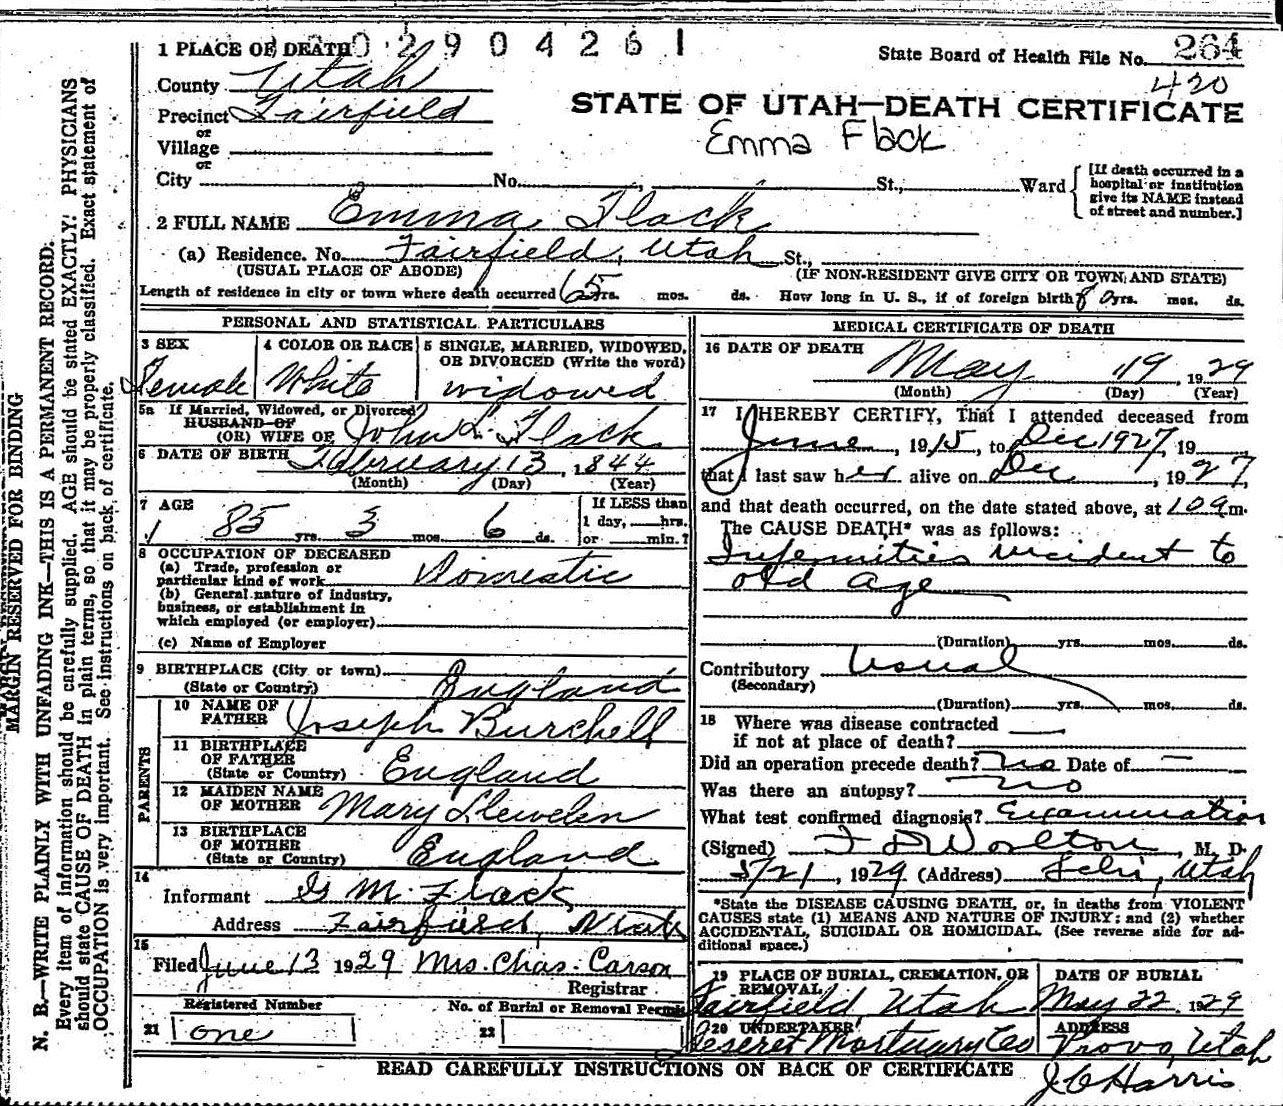 1 PLACE OF DEATH 02904261
State Board of Health File No. 264
420
County Utah
Precinct Fairfield
or
Village
or
City No. St., Ward
[If death occurred in a hospital or institution give its NAME instead of street and number.]
STATE OF UTAH—DEATH CERTIFICATE
Emma Flack
2 FULL NAME Emma Flack
(a) Residence. No. Fairfield, Utah St.,
(USUAL PLACE OF ABODE) (IF NON-RESIDENT GIVE CITY OR TOWN AND STATE)
Length of residence in city or town where death occurred 65 yrs. mos. ds. How long in U. S., if of foreign birth? yrs. mos. ds.
PERSONAL AND STATISTICAL PARTICULARS
3 SEX
Female
4 COLOR OR RACE
White
5 SINGLE, MARRIED, WIDOWED, OR DIVORCED (Write the word)
widowed
5a If Married, Widowed, or Divorced
HUSBAND OF
(OR) WIFE OF John L. Flack
6 DATE OF BIRTH February 13, 1844
(Month) (Day) (Year)
7 AGE
85 yrs. 3 mos. 6 ds.
If LESS than
1 day, hrs.
or min.?
8 OCCUPATION OF DECEASED
(a) Trade, profession or
particular kind of work Domestic
(b) General nature of industry,
business, or establishment in
which employed (or employer)
(c) Name of Employer
9 BIRTHPLACE (City or town)
(State or Country) England
PARENTS
10 NAME OF
FATHER Joseph Burchell
11 BIRTHPLACE
OF FATHER
(State or Country) England
12 MAIDEN NAME
OF MOTHER Mary Llewelen
13 BIRTHPLACE
OF MOTHER
(State or Country) England
14
Informant M. Flack
Address Fairfield, Utah
15
Filed June 13 1929 Mrs. Chas. Carson
Registrar
Registered Number
21 one
No. of Burial or Removal Permit
22
MEDICAL CERTIFICATE OF DEATH
16 DATE OF DEATH
May 19, 1929
(Month) (Day) (Year)
17 I HEREBY CERTIFY, That I attended deceased from
June, 1915, to Dec 1927, 19
that I last saw her alive on Dec, 1927,
and that death occurred, on the date stated above, at m.
The CAUSE DEATH* was as follows:
Infermities incident to
old age
(Duration) yrs. mos. ds.
Contributory Usual
(Secondary)
(Duration) yrs. mos. ds.
18 Where was disease contracted
if not at place of death?
Did an operation precede death? no Date of —
Was there an autopsy? no
What test confirmed diagnosis? Examination
(Signed) Worlton, M. D.
5/21, 1929 (Address) Lehi, Utah
*State the DISEASE CAUSING DEATH, or, in deaths from VIOLENT
CAUSES state (1) MEANS AND NATURE OF INJURY; and (2) whether
ACCIDENTAL, SUICIDAL OR HOMICIDAL. (See reverse side for ad-
ditional space.)
19 PLACE OF BURIAL, CREMATION, OR
REMOVAL
Fairfield, Utah
DATE OF BURIAL
May 22, 1929
20 UNDERTAKER
Deseret Mortuary Co
ADDRESS
Provo, Utah
J C Harris
READ CAREFULLY INSTRUCTIONS ON BACK OF CERTIFICATE
MARGIN RESERVED FOR BINDING
N. B.—WRITE PLAINLY WITH UNFADING INK—THIS IS A PERMANENT RECORD.
Every item of information should be carefully supplied. AGE should be stated EXACTLY. PHYSICIANS
should state CAUSE OF DEATH in plain terms, so that it may be properly classified. Exact statement of
OCCUPATION is very important. See instructions on back of certificate.